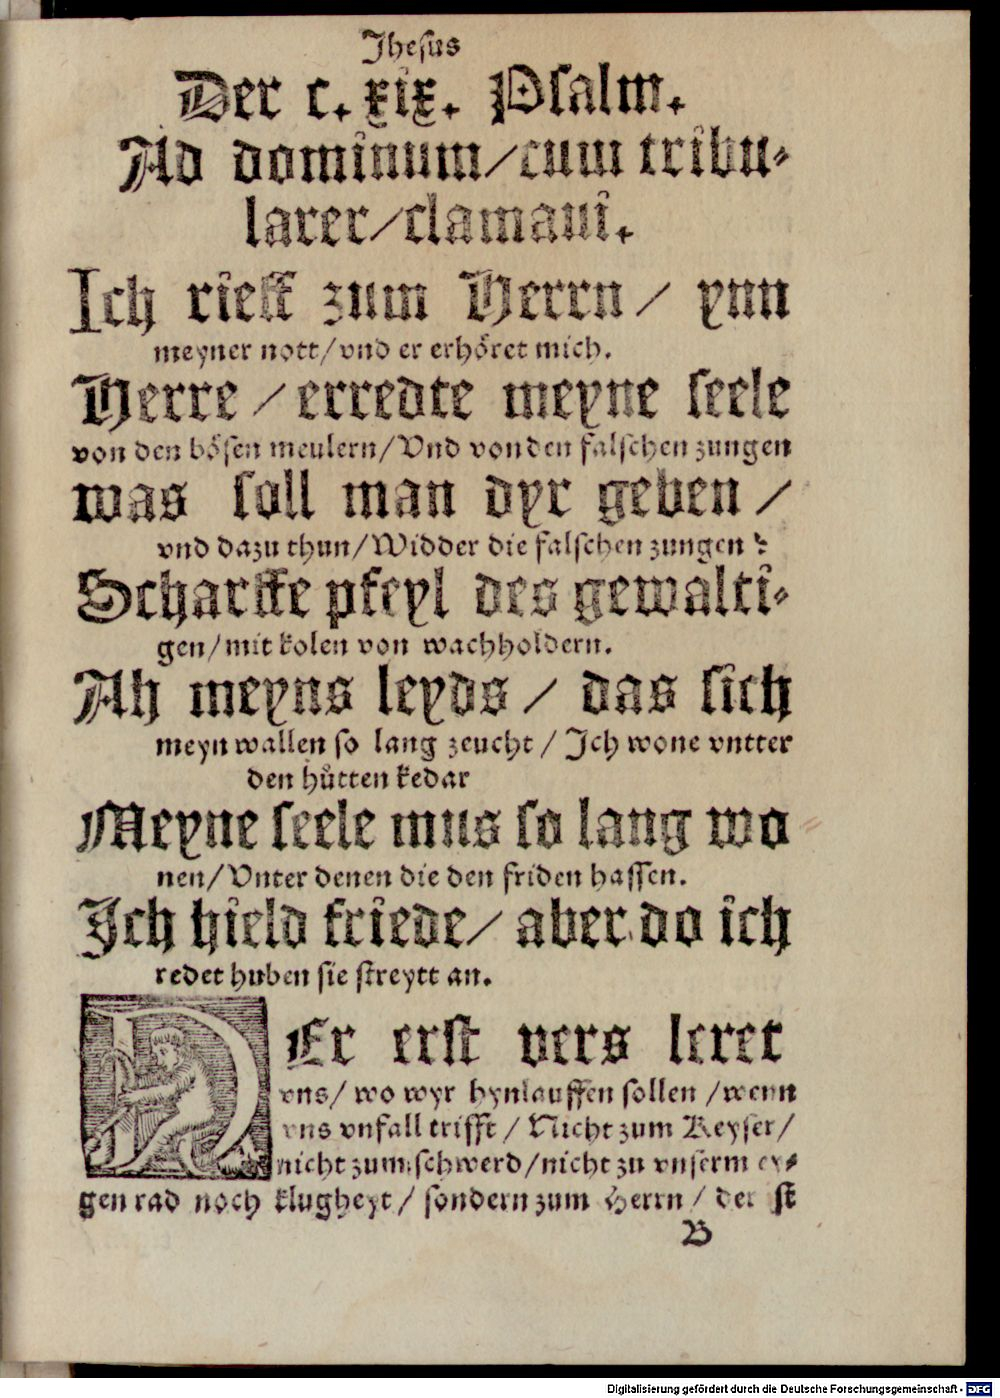 Jhesus
Der c. xix. Psalm.
Ad dominum/cum tribu⸗
larer/clamaui.
Ich rieff zum Herrn/ ynn
meyner nott/vnd er erhöret mich.
Herre/ erredte meyne seele
von den bösen meulern/Vnd von den falschen zungen
was soll man dyr geben/
vnd dazu thun/Widder die falschen zungen?
Scharffe pfeyl des gewalti⸗
gen/mit kolen von wachholdern.
Ah meyns leyds/ das sich
meyn wallen so lang zeucht/ Ich wone vntter
den hůtten kedar
Meyne seele mus so lang wo
nen/Vnter denen die den friden hassen.
Ich hield friede/ aber do ich
redet huben sie streytt an.
DEr erst vers leret
vns/ wo wyr hynlauffen sollen/wenn
vns vnfall trifft/ Nicht zum Keyser/
nicht zum schwerd/nicht zu vnserm ey⸗
gen rad noch klugheyt/ sondern zum Herrn/ der ist
B
Digitalisierung gefördert durch die Deutsche Forschungsgemeinschaft - DFG